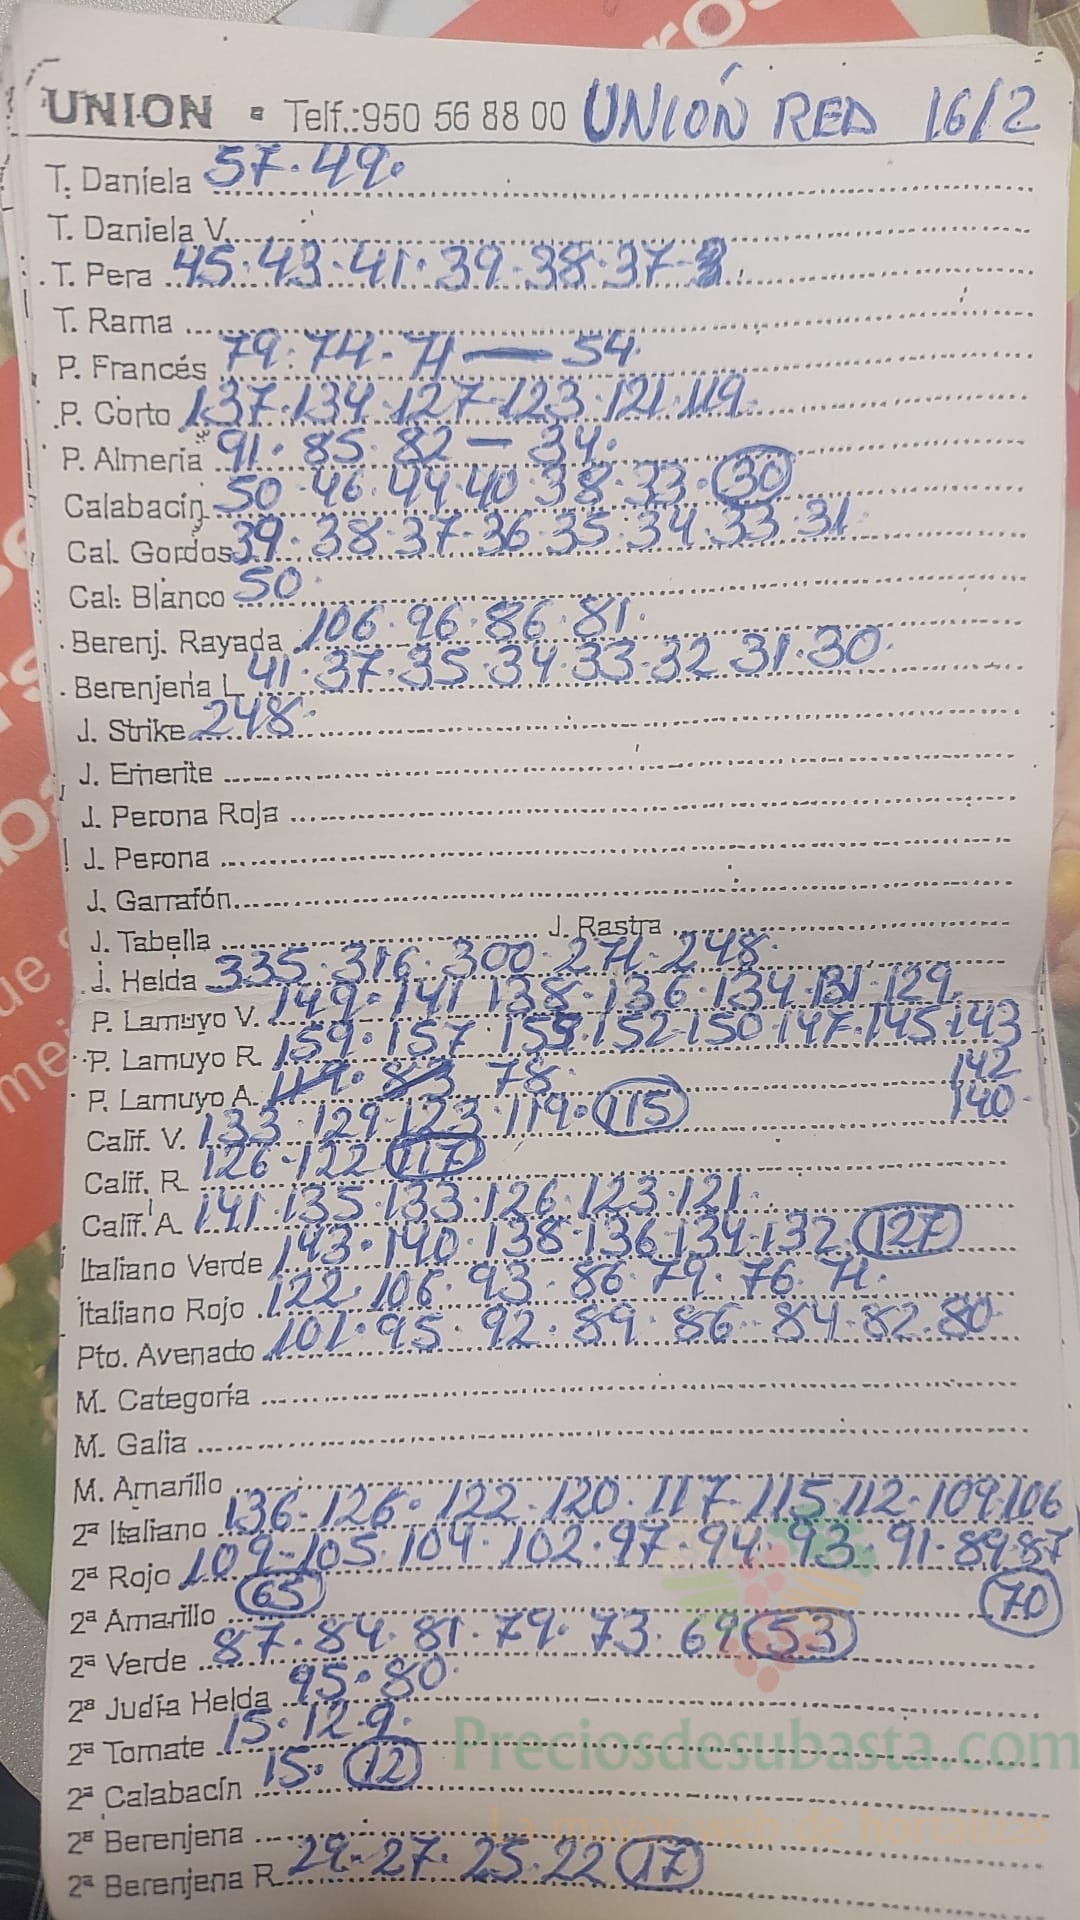 UNION ▪ Telf.:950 56 88 00 UNIÓN RED 16/2
T. Daniela 57·49·
T. Daniela V.
T. Pera 45·43·41·39·38·37·
T. Rama
P. Francés 79·74·71—54·
P. Corto 137·134·127·123·121·119·
P. Almería 91·85·82—34·
Calabacín 50·46·44·40·38·33·30
Cal. Gordos 39·38·37·36·35·34·33·31·
Cal. Blanco 50·
Berenj. Rayada 106·96·86·81·
Berenjena L 41·37·35·34·33·32·31·30·
J. Strike 248·
J. Emerite
J. Perona Roja
J. Perona
J. Garrafón
J. Tabella J. Rastra
J. Helda 335·316·300·271·248·
P. Lamuyo V. 149·141·138·136·134·131·129·
P. Lamuyo R. 159·157·155·152·150·147·145·143
142
P. Lamuyo A. 78·
140·
Calif. V. 133·129·123·119·115
Calif. R. 126·122·117
Calif. A. 141·135·133·126·123·121·
Italiano Verde 143·140·138·136·134·132·127
Italiano Rojo 122·106·93·86·79·76·71·
Pto. Avenado 101·95·92·89·86·84·82·80·
M. Categoría
M. Galia
M. Amarillo
2ª Italiano 136·126·122·120·117·115·112·109·106
2ª Rojo 109·105·104·102·97·94·93·91·89·87
70
2ª Amarillo 65
2ª Verde 87·84·81·79·73·69·53
2ª Judía Helda 95·80·
2ª Tomate 15·12·9·
2ª Calabacín 15·12
2ª Berenjena
2ª Berenjena R. 29·27·25·22·17
Preciosdesubasta.com
La mayor web de hortalizas